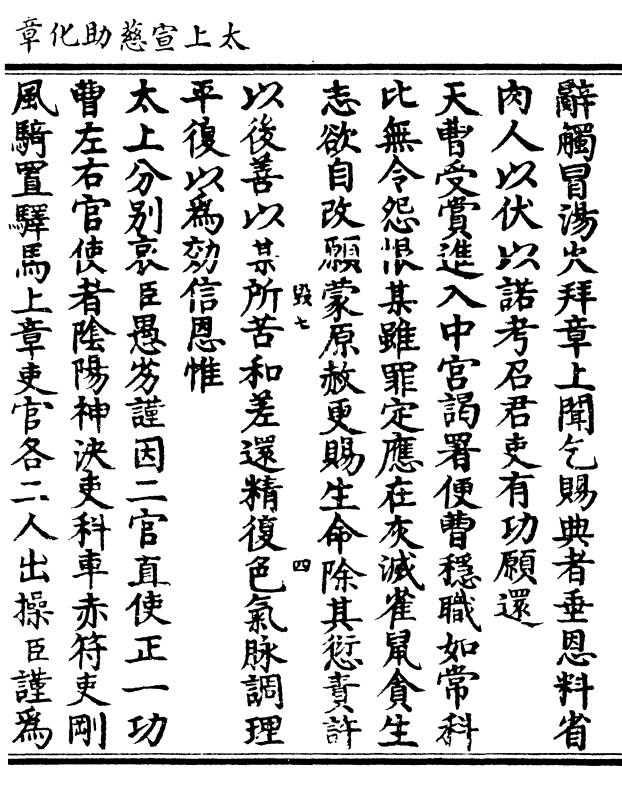 太上宣慈助化章
辭觸冒湯火拜章上聞乞賜典者垂恩料省
肉人以伏以諾考召君吏有功願還
天曹受賞進入中宮謁署便曹穩職如常科
比無令怨恨某雖罪定應在灰滅雀鼠貪生
志欲自改願蒙原赦更賜生命除其愆責許
毀七
四
以後善以某所苦和差還精復色氣脉調理
平復以為効信恩惟
太上分別哀臣愚劣謹因二官直使正一功
曹左右官使者陰陽神決吏科車赤符吏剛
風騎置驛馬上章吏官各二人出操臣謹為